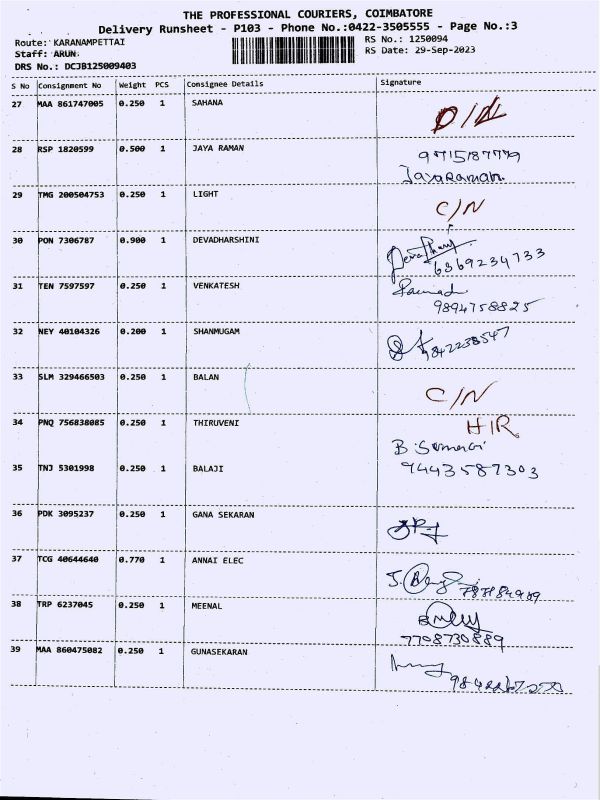 THE PROFESSIONAL COURIERS, COIMBATORE
Delivery Runsheet - P103 - Phone No.:0422-3505555 - Page No.:3
Route: KARANAMPETTAI RS No.: 1250094
Staff: ARUN. RS Date: 29-Sep-2023
DRS No.: DCJB125009403
S No Consignment No Weight PCS Consignee Details Signature
27 MAA 861747005 0.250 1 SAHANA
28 RSP 1820599 0.500 1 JAYA RAMAN
Jayaraman.
29 TMG 200504753 0.250 1 LIGHT C/N
30 PON 7306787 0.900 1 DEVADHARSHINI
6369234733
31 TEN 7597597 0.250 1 VENKATESH
9894758825
32 NEY 40104326 0.200 1 SHANMUGAM 9842238547
33 SLM 329466503 0.250 1 BALAN C/N
34 PNQ 756838085 0.250 1 THIRUVENI H/R
35 TNJ 5301998 0.250 1 BALAJI 9443587303
36 PDK 3095237 0.250 1 GANA SEKARAN
37 TCG 40644640 0.770 1 ANNAI ELEC
38 TRP 6237045 0.250 1 MEENAL
7708730889
39 MAA 860475082 0.250 1 GUNASEKARAN